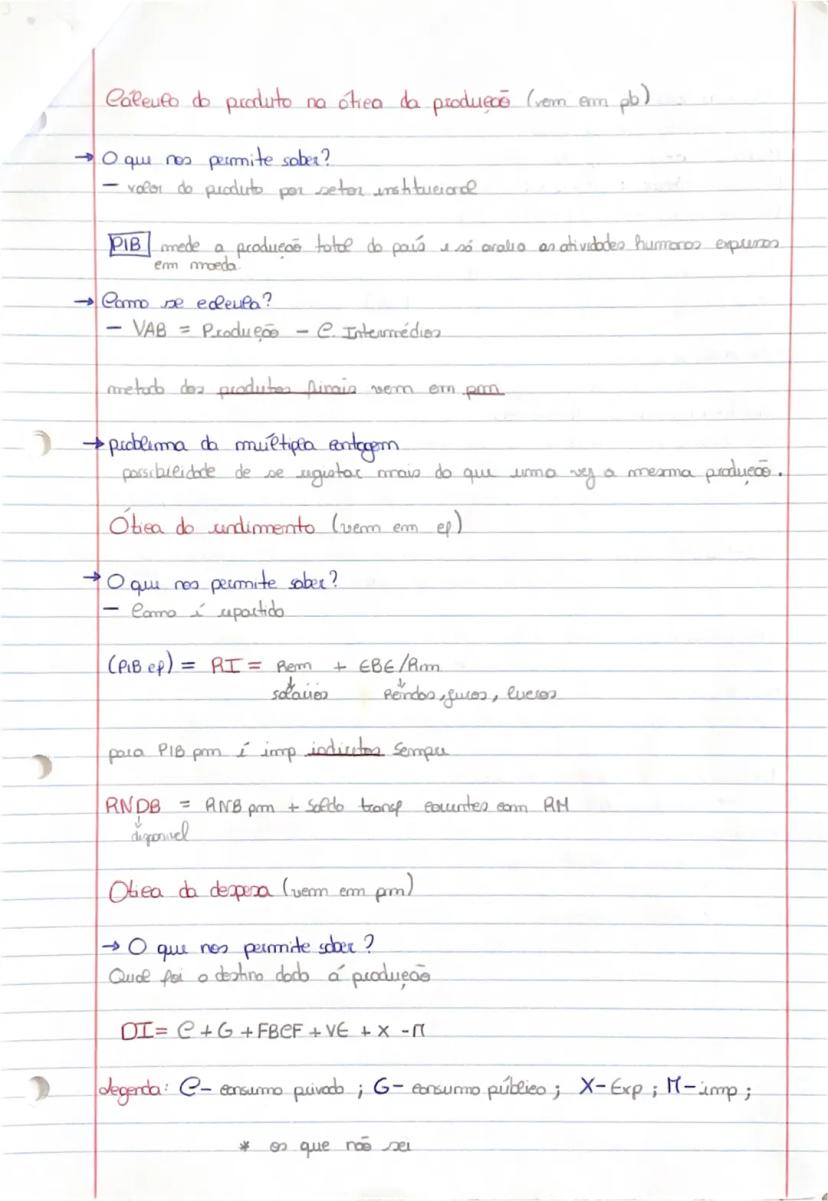 Cálculo do produto na ótica da produção (vem em pb)
→ O que nos permite saber?
- valor do produto por setor institucional
PIB mede a produção total do país e só avalia as atividades humanas expressas
em moeda
→ Como se calcula?
- VAB = Produção - C. Intermédios
metodo dos produtos finais vem em pm
→ problema da múltipla contagem
possibilidade de se registar mais do que uma vez a mesma produção.
Ótica do rendimento (vem em cf)
→ O que nos permite saber?
- Como é repartido
(PIB cf) = RI = Rem + EBE/Rm
salários Rendas, juros, lucros
para PIB pm é imp indiretos sempre
RNDB = RNB pm + Saldo transf correntes com RM
disponivel
Otica da despesa (vem em pm)
→ O que nos permite saber?
Qual foi o destino dado á produção
DI = C + G + FBCF + VE + X - M
legenda: C- consumo privado ; G- consumo público ; X- Exp ; M- imp ;
* os que não sei